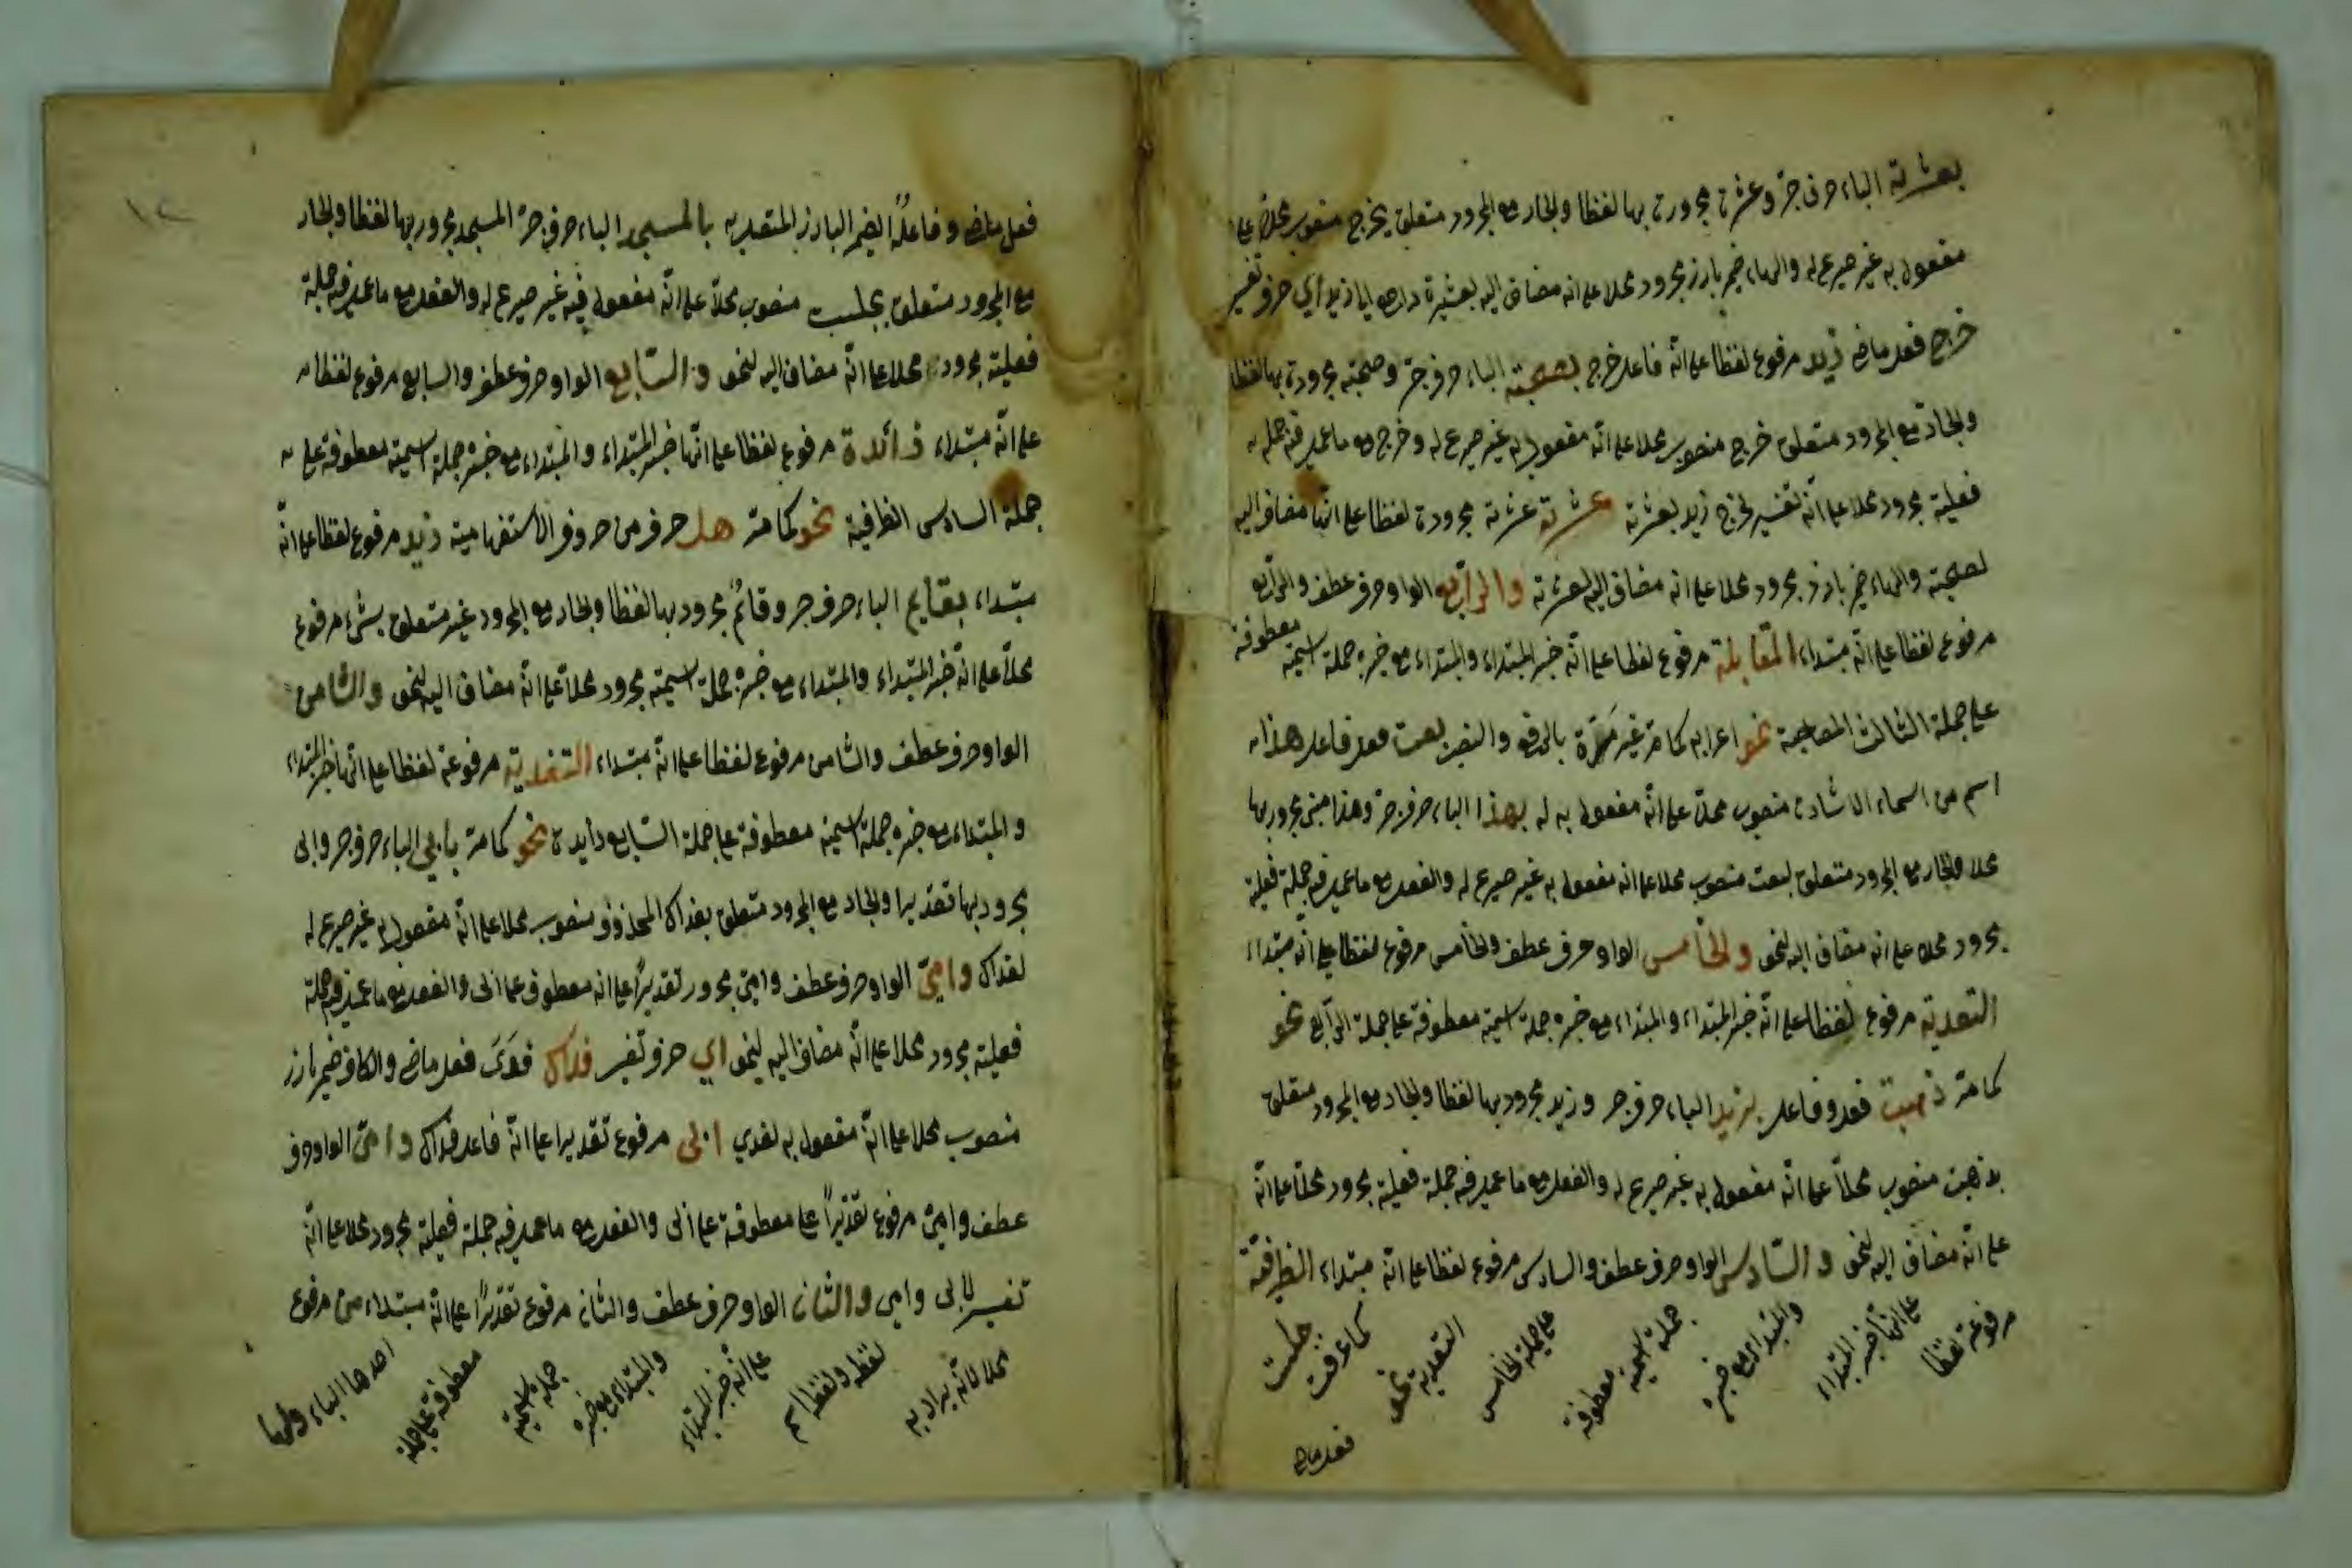 بعشرته الباء حرف جرّ وعشرة مجرورة بها لفظا والجار مع المجرور متعلق بخرج منصوب محلا على
مفعول به غير صريح له والهاء ضمير بارز مجرور محلا على انه مضاف اليه لعشيرة اي حرف تفسير
خرج فعل ماض زيد مرفوع لفظا على انّه فاعل خرج بصحبته الباء حرف جرّ وصحبته مجرورة بها لفظا
والجارّ مع المجرور متعلق خرج منصوب محلا على انّه مفعول به غير صريح له وخرج مع ما عمل فيه جملة
فعلية مجرور محلا على انّه تفسير لخرج زيد بعشرته عشرته عشرته مجرورة لفظا على انّها مضاف اليه
لصحبته والهاء ضمير بارز مجرور محلا على انه مضاف اليه لعشرته والرّابع الواو حرف عطف والرّابع
مرفوع لفظا على انّه مبتداء المقابلة مرفوع لفظا على انّه خبر المبتداء والمبتداء مع خبره جملة اسمية معطوفة
على جملة الثالث المصاحبة نحو اعرابه كما مرّ غير مرّة بالرفع والنصب بعت فعل فاعل هذا
اسم من اسماء الاشارة منصوب محلّا على انّه مفعول به له بهذا الباء حرف جرّ وهذا مبنى مجرور بها
محلا والجار مع المجرور متعلق لبعت منصوب محلا على انه مفعول به غير صريح له والفعل مع ما عمل فيه جملة فعلية
مجرور محلا على انه مضاف اليه لنحو والخامس الواو حرف عطف والخامس مرفوع لفظا على انّه مبتداء
التعدية مرفوع لفظا على انّه خبر المبتداء والمبتداء مع خبره جملة اسمية معطوفة على جملة الرّابع نحو
كما مرّ ذهبت فعل وفاعل بزيد الباء حرف جر وزيد مجرور بها لفظا والجار مع المجرور متعلق
بذهبت منصوب محلّا على انّه مفعول به غير صريح له والفعل مع ما عمل فيه جملة فعلية مجرور محلّا على انّه
على انّه مضاف اليه لنحو والسّادس الواو حرف عطف والسادس مرفوع لفظا على انّه مبتداء الظرفيّة
مرفوعة لفظا
على انّها خبر المبتداء
والمبتداء مع خبره
جملة اسمية معطوفة
على جملة الخامس
التعدية نحو
كما عرفت
جلست
فعل ماض
١٢
فعل ماض وفاعلهُ الضمير البارز المتصل به بالمسجد الباء حرف جرّ المسجد مجرور بها لفظا والجار
مع المجرور متعلق بجلست منصوب محلّا على انّه مفعول فيه غير صريح له والفعل مع ما عمل فيه جملة
فعلية مجرور محلا على انّه مضاف اليه لنحو والسّابع الواو حرف عطف والسابع مرفوع لفظا
على انّه مبتداء زائدة مرفوع لفظا على انّها خبر المبتداء والمبتداء مع خبره جملة اسمية معطوفة على
جملة السادس الظرفية نحو كما مرّ هل حرف من حروف الاستفهامية زيد مرفوع لفظا على انّه
مبتداء بقايم الباء حرف جر وقائمٌ مجرور بها لفظا والجار مع المجرور غير متعلق بشئ مرفوع
محلّا على انّه خبر المبتداء والمبتداء مع خبره جملة اسمية مجرور محلّا على انّه مضاف اليه لنحو والثامن
الواو حرف عطف والثامن مرفوع لفظا على انّه مبتداء التفدية مرفوعة لفظا على انّها خبر المبتداء
والمبتداء مع خبره جملة اسمية معطوفة على جملة السّابع زايدة نحو كما مرّ بابي الباء حرف جر وابى
مجرور بها تقديرا والجار مع المجرور متعلق بفداك المحذوف منصوب محلا على انّه مفعول به غير صريح له
لفداك وامّي الواو حرف عطف وامّي مجرور تقديرًا على انه معطوف على ابى والفعل مع ما عمل فيه جملة
فعلية مجرور محلا على انّه مضاف اليه لنحو اي حرف تفسير فداك فدَى فعل ماض والكاف ضمير بارز
منصوب محلا على انّه مفعول به لفدي ابى مرفوع تقديرا على انّه فاعل فداك وامّي الواو حرف
عطف وامّي مرفوع تقديرًا على معطوفة على ابى والفعل مع ما عمل فيه جملة فعلية مجرور محلا على انّه
تفسير لابى وامى والثان الواو حرف عطف والثانى مرفوع تقديرًا على انّه مبتداء من مرفوع
محلا لانّه يراد به
لفظه ولفظا اسم
على انّه خبر المبتداء
والمبتداء مع خبره
جملة اسمية
معطوفة على جملة
احدها الباء ولها